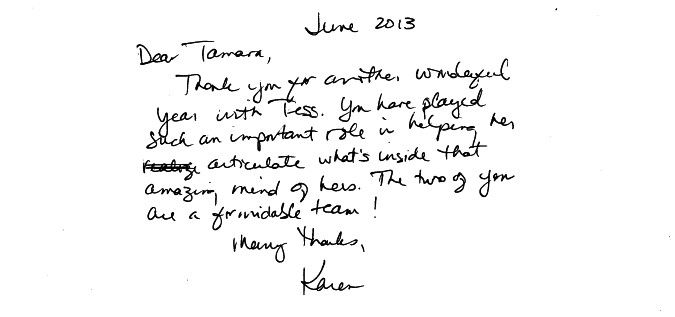 June 2013
Dear Tamara,
Thank you for another wonderful
year with Tess. You have played
such an important role in helping her
articulate what's inside that
amazing mind of hers. The two of you
are a formidable team!
Many thanks,
Karen